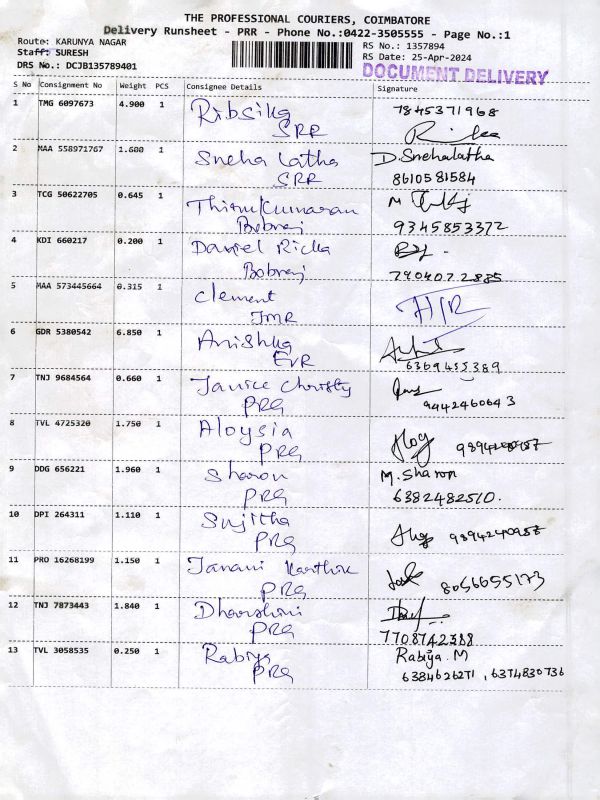 THE PROFESSIONAL COURIERS, COIMBATORE
Delivery Runsheet - PRR - Phone No.:0422-3505555 - Page No.:1
Route: KARUNYA NAGAR RS No.: 1357894
Staff: SURESH RS Date: 25-Apr-2024
DRS No.: DCJB135789401 DOCUMENT DELIVERY
S No Consignment No Weight PCS Consignee Details Signature
1 TMG 6097673 4.900 1 Ribsika 7845371968
SRR
2 MAA 558971767 1.600 1 Sneha Latha D.Snehalatha
SRR 8610581584
3 TCG 50622705 0.645 1 Thirukumaran M
Bobraj 9345853372
4 KDI 660217 0.200 1 Daniel Richa
Bobraj 7904072885
5 MAA 573445664 0.315 1 Clement H/R
JMR
6 GDR 5380542 6.850 1 Anishka
EVR 6369455389
7 TNJ 9684564 0.660 1 Janice Christy
PRG 9442460643
8 TVL 4725320 1.750 1 Aloysia
PRG
9 DDG 656221 1.960 1 Sharon M. Sharon
PRG 6382482510.
10 DPI 264311 1.110 1 Sujitha
PRG 9894240957
11 PRO 16268199 1.150 1 Janani Karthik
PRG 8056655173
12 TNJ 7873443 1.840 1 Dharshini
PRG 7708742388
13 TVL 3058535 0.250 1 Rabiya Rabiya. M
PRG 6384626271 , 6374830736